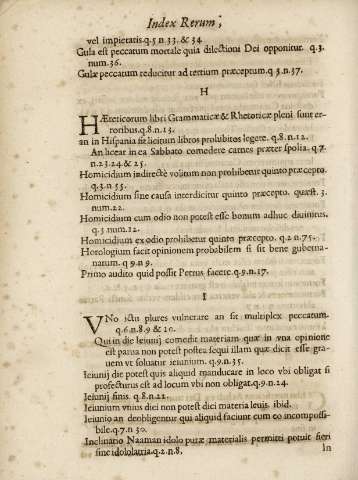 Index Rerum,
vel impietatis. q.5 n.33. & 34.
Gula est peccatum mortale quia dilectioni Dei opponitur. q.3.
num.36.
Gulæ peccatum reducitur ad tertium præceptum. q 3 n.37.
H
HÆreticorum libri Grammaticæ & Rhetoricæ pleni sunt er-
roribus. q.8. n.13.
an in Hispania sit licitum libros prohibitos legere. q.8. n.12.
An liceat in ea Sabbato comedere carnes præter spolia. q.7.
n.23.24 & 25.
Homicidium indirectè volitum non prohibetur quinto præcepto.
q.3. n 55.
Homicidium sine causa interdicitur quinto præcepto. quæst. 3.
num.22.
Homicidium cum odio non potest esse bonum adhuc diuinitus.
q.5 num.12.
Homicidium ex odio prohibetur quinto præcepto. q.2 n.75.
Horologium facit opinionem probabilem si sit bene guberna-
natum. q 9. n 9.
Primo audito quid possit Petrus facere. q.9. n.17.
I
VNo ictu plures vulnerare an sit multiplex peccatum.
q.6. n.8.9 & 10.
Qui in die Ieiunij comedit materiam quæ in vna opinione
est parua non potest postea sequi illam quæ dicit esse gra-
uem vt soluatur ieiunium. q.9. n.35.
Ieiunij die potest quis aliquid manducare in loco vbi obligat si
profecturus est ad locum vbi non obligat. q.9. n.24.
Ieiunij finis. q 8. n.22.
Ieiunium vnius dici non potest dici materia leuis. ibid.
Ieiunio an deobligentur qui aliquid faciunt cum eo incompossi-
bile. q.7. n 30.
Inclinatio Naaman idolo puræ materialis permitti potuit fieri
sine idololatria. q.2. n.8.
In